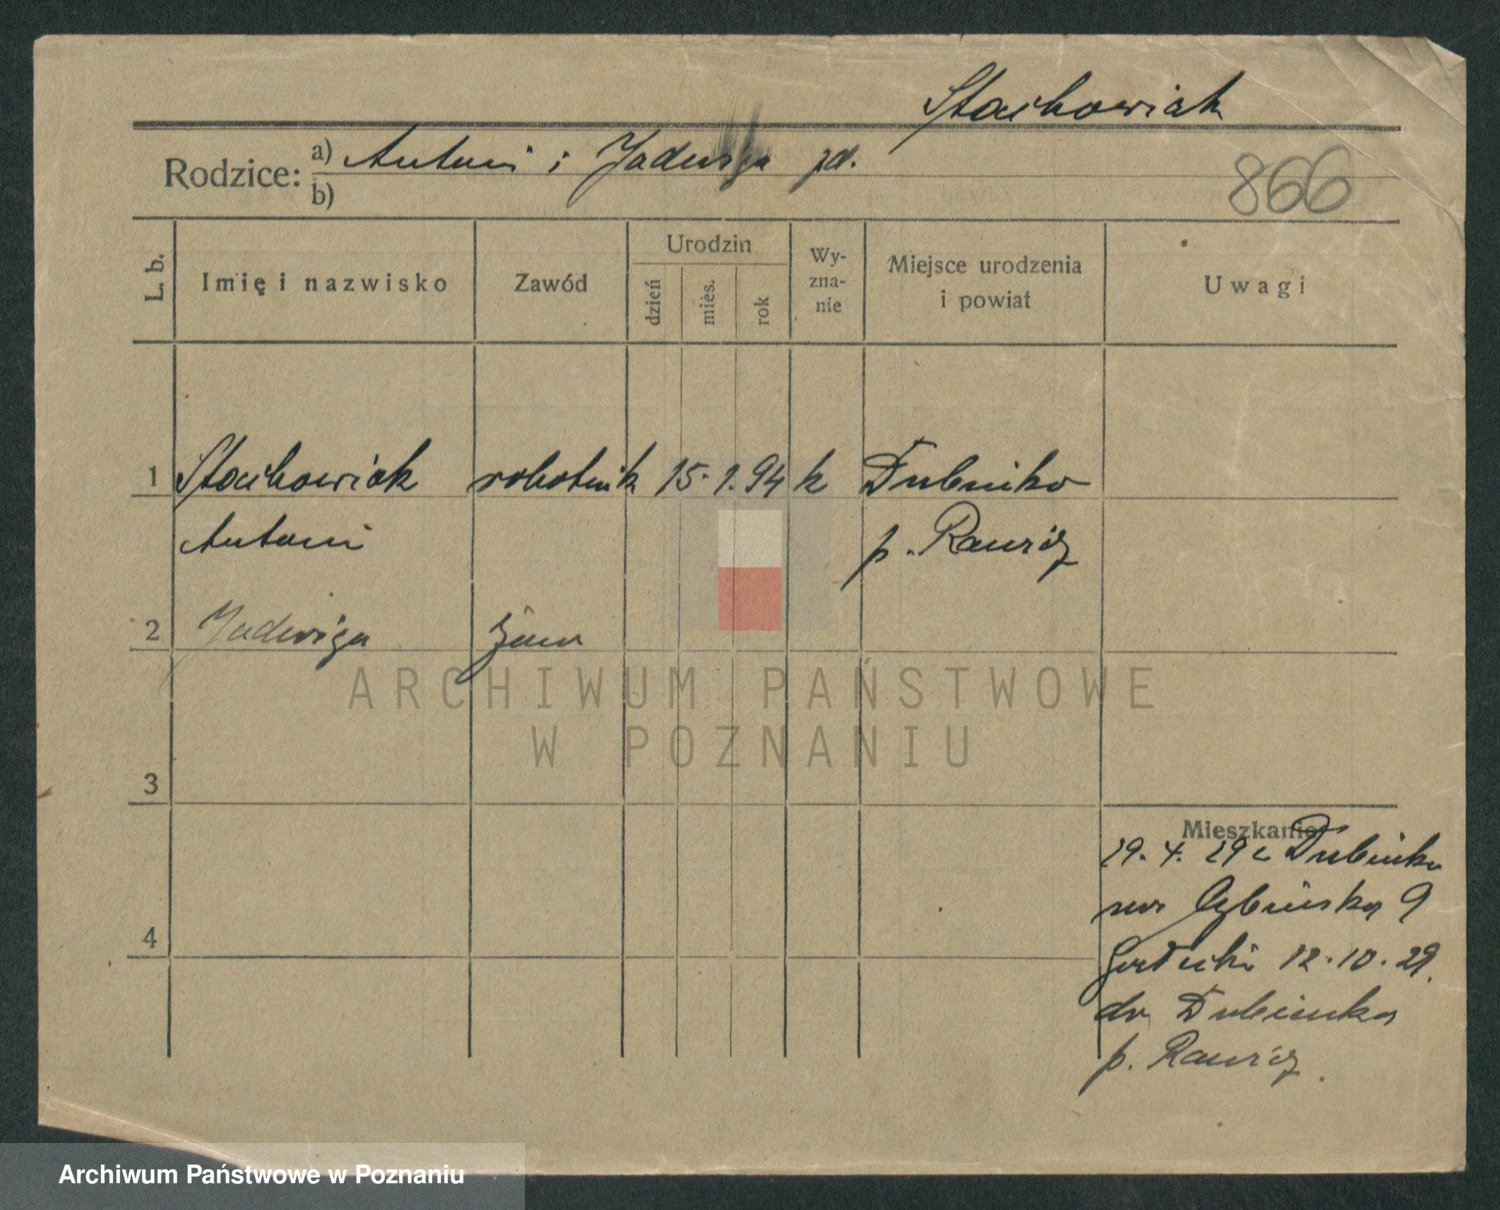 Stachowiak
Rodzice: a) Antoni i Jadwiga zd.
b)
866
L. b. Imię i nazwisko Zawód Urodzin dzień mies. rok Wy-zna-nie Miejsce urodzenia i powiat Uwagi
1 Stachowiak robotnik 15. 1. 94 k Dubinko
Antoni p. Rawicz
2 Jadwiga żona
ARCHIWUM PAŃSTWOWE
W POZNANIU
3
Mieszkanie
29. 4. 29 z Dubinka
na Cybińska 9
4
12. 10. 29.
do Dubinka
p. Rawicz
Archiwum Państwowe w Poznaniu